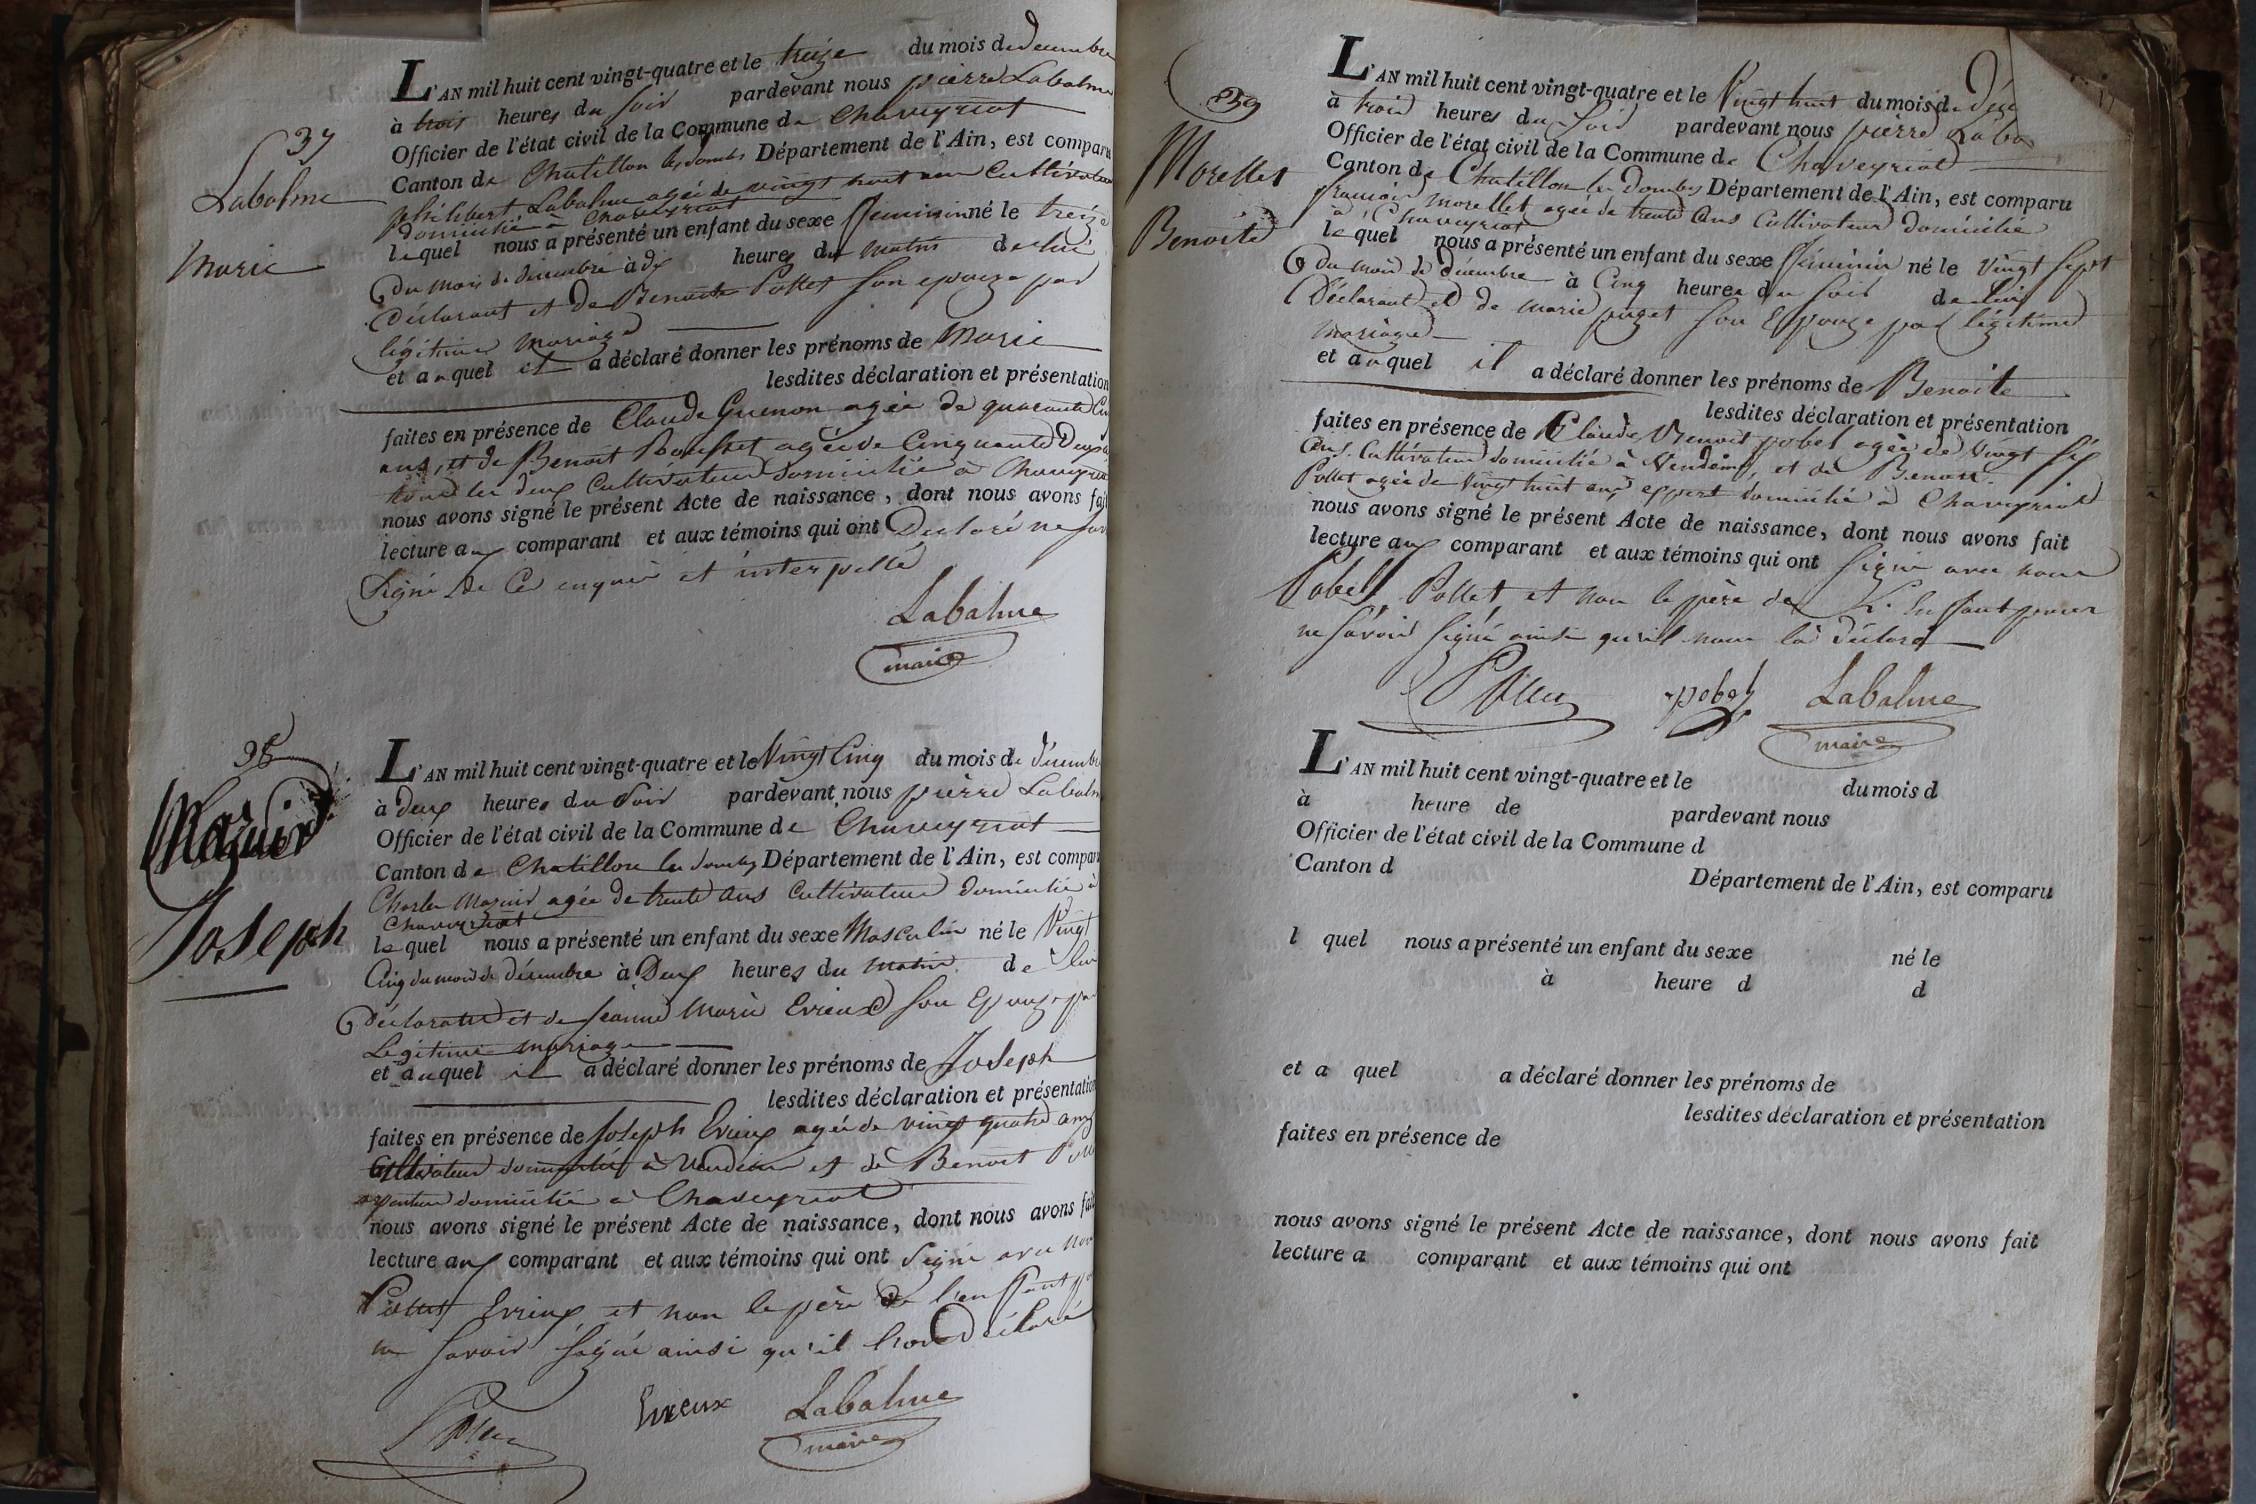 37
Labalme
Marie
L'AN mil huit cent vingt-quatre et le treize du mois de decembre
à trois heures du soir pardevant nous pierre Labalme
Officier de l'état civil de la Commune de Chaveyriat
Canton de Chatillon les dombes Département de l'Ain, est comparu
philibert Labalme agée de vingt huit ans Cultivateur
domicilié à Chaveyriat
lequel nous a présenté un enfant du sexe feminin né le treize
du mois de decembre à dix heures du matin de lui
Déclarant et de Benoite Pollet son epouze par
légitime mariage
et auquel il a déclaré donner les prénoms de Marie
lesdites déclaration et présentation
faites en présence de Claude Guenon agée de quarante
ans, et de Benoit Bouffet agée de Cinquante Deux
tous les deux Cultivateur Domicilié à Chaveyriat
nous avons signé le présent Acte de naissance, dont nous avons fait
lecture aux comparant et aux témoins qui ont Declaré ne savoir
Signé de Ce enquis et interpellé
Labalme
maire
38
Mazuir
Joseph
L'AN mil huit cent vingt-quatre et le Vingt Cinq du mois de décembre
à deux heures du soir pardevant nous pierre Labalme
Officier de l'état civil de la Commune de Chaveyriat
Canton de Chatillon les dombes Département de l'Ain, est comparu
Charles Mazuir agée de trente ans Cultivateur domicilié à
Chaveyriat
lequel nous a présenté un enfant du sexe Masculin né le Vingt
Cinq du mois de décembre à Deux heures du matin de lui
déclarant et de Jeanne Marie Evieux son Epouze par
Légitime mariage
et auquel il a déclaré donner les prénoms de Joseph
lesdites déclaration et présentation
faites en présence de Joseph Evieux agée de vingt quatre ans
Cultivateur domicilié à Vendeins et de Benoit Pollet
domicilié à Chaveyriat
nous avons signé le présent Acte de naissance, dont nous avons fait
lecture aux comparant et aux témoins qui ont Signé avec nous
Pollet Evieux et non le père de l'enffant pour
ne savoir signé ainsi qu'il Déclaré
Evieux Labalme
maire
39
Morellet
Benoite
L'AN mil huit cent vingt-quatre et le Vingt huit du mois de Déce
à trois heures du Soir pardevant nous pierre Laba
Officier de l'état civil de la Commune de Chaveyriat
Canton de Chatillon les Dombes Département de l'Ain, est comparu
françois Morellet agée de trente Ans Cultivateur domicilié
à Chaveyriat
lequel nous a présenté un enfant du sexe féminin né le vingt sept
Du mois de décembre à Cinq heures du soir de lui
Déclarant et de marie puget son Epouze par légitime
mariage
et auquel il a déclaré donner les prénoms de Benoite
lesdites déclaration et présentation
faites en présence de Claude Benoit pobel agée de Vingt six
ans. Cultivateur domicilié à Vendeins, et de Benoit
Pollet agée de Vingt huit ans expert domicilié à Chaveyriat
nous avons signé le présent Acte de naissance, dont nous avons fait
lecture aux comparant et aux témoins qui ont signé avec nous
Pobel Pollet et non le père de L'Enffant pour
ne savoir signé ainsi qu'il nous la déclaré
Pollet pobel Labalme
maire
L'AN mil huit cent vingt-quatre et le du mois d
à heure de pardevant nous
Officier de l'état civil de la Commune d
Canton d Département de l'Ain, est comparu
l quel nous a présenté un enfant du sexe né le
à heure d d
et a quel a déclaré donner les prénoms de
lesdites déclaration et présentation
faites en présence de
nous avons signé le présent Acte de naissance, dont nous avons fait
lecture a comparant et aux témoins qui ont